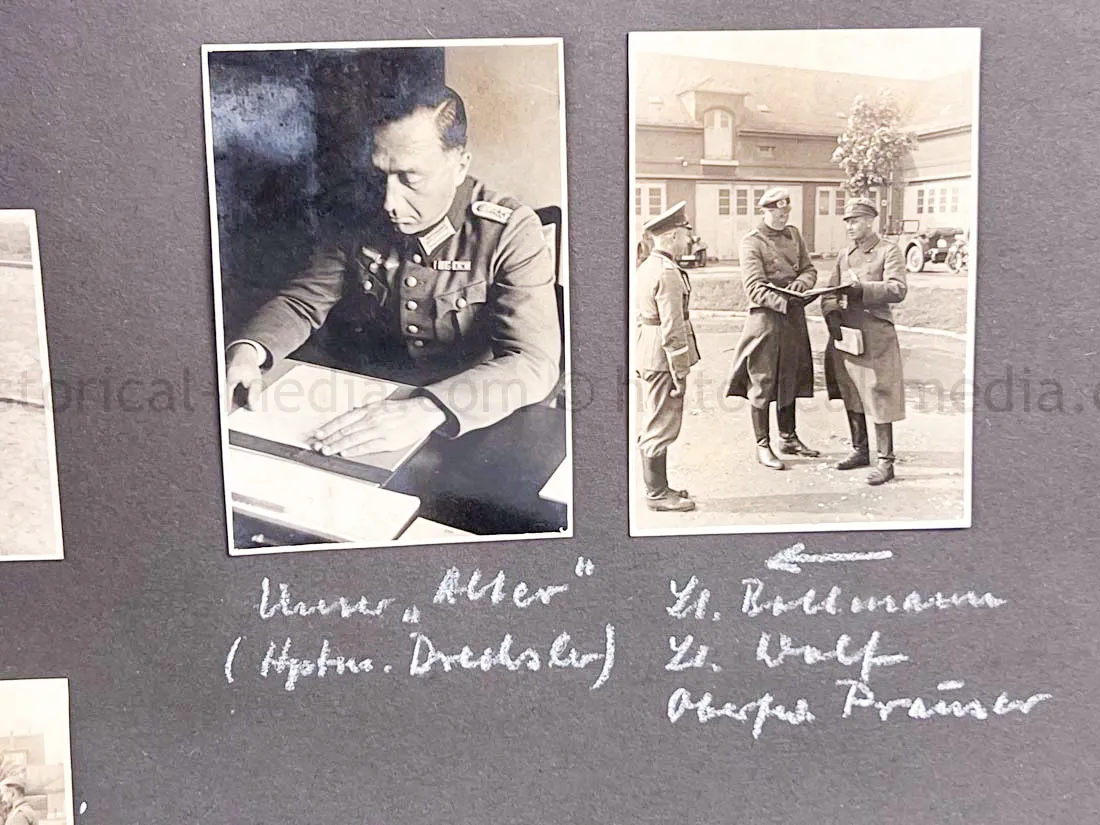 Unser „Alter“
(Hptm. Drechsler)
Lt. Bollmann
Lt. Wolf
Oberfw. Prauser
historical-media.com © historical-media.com